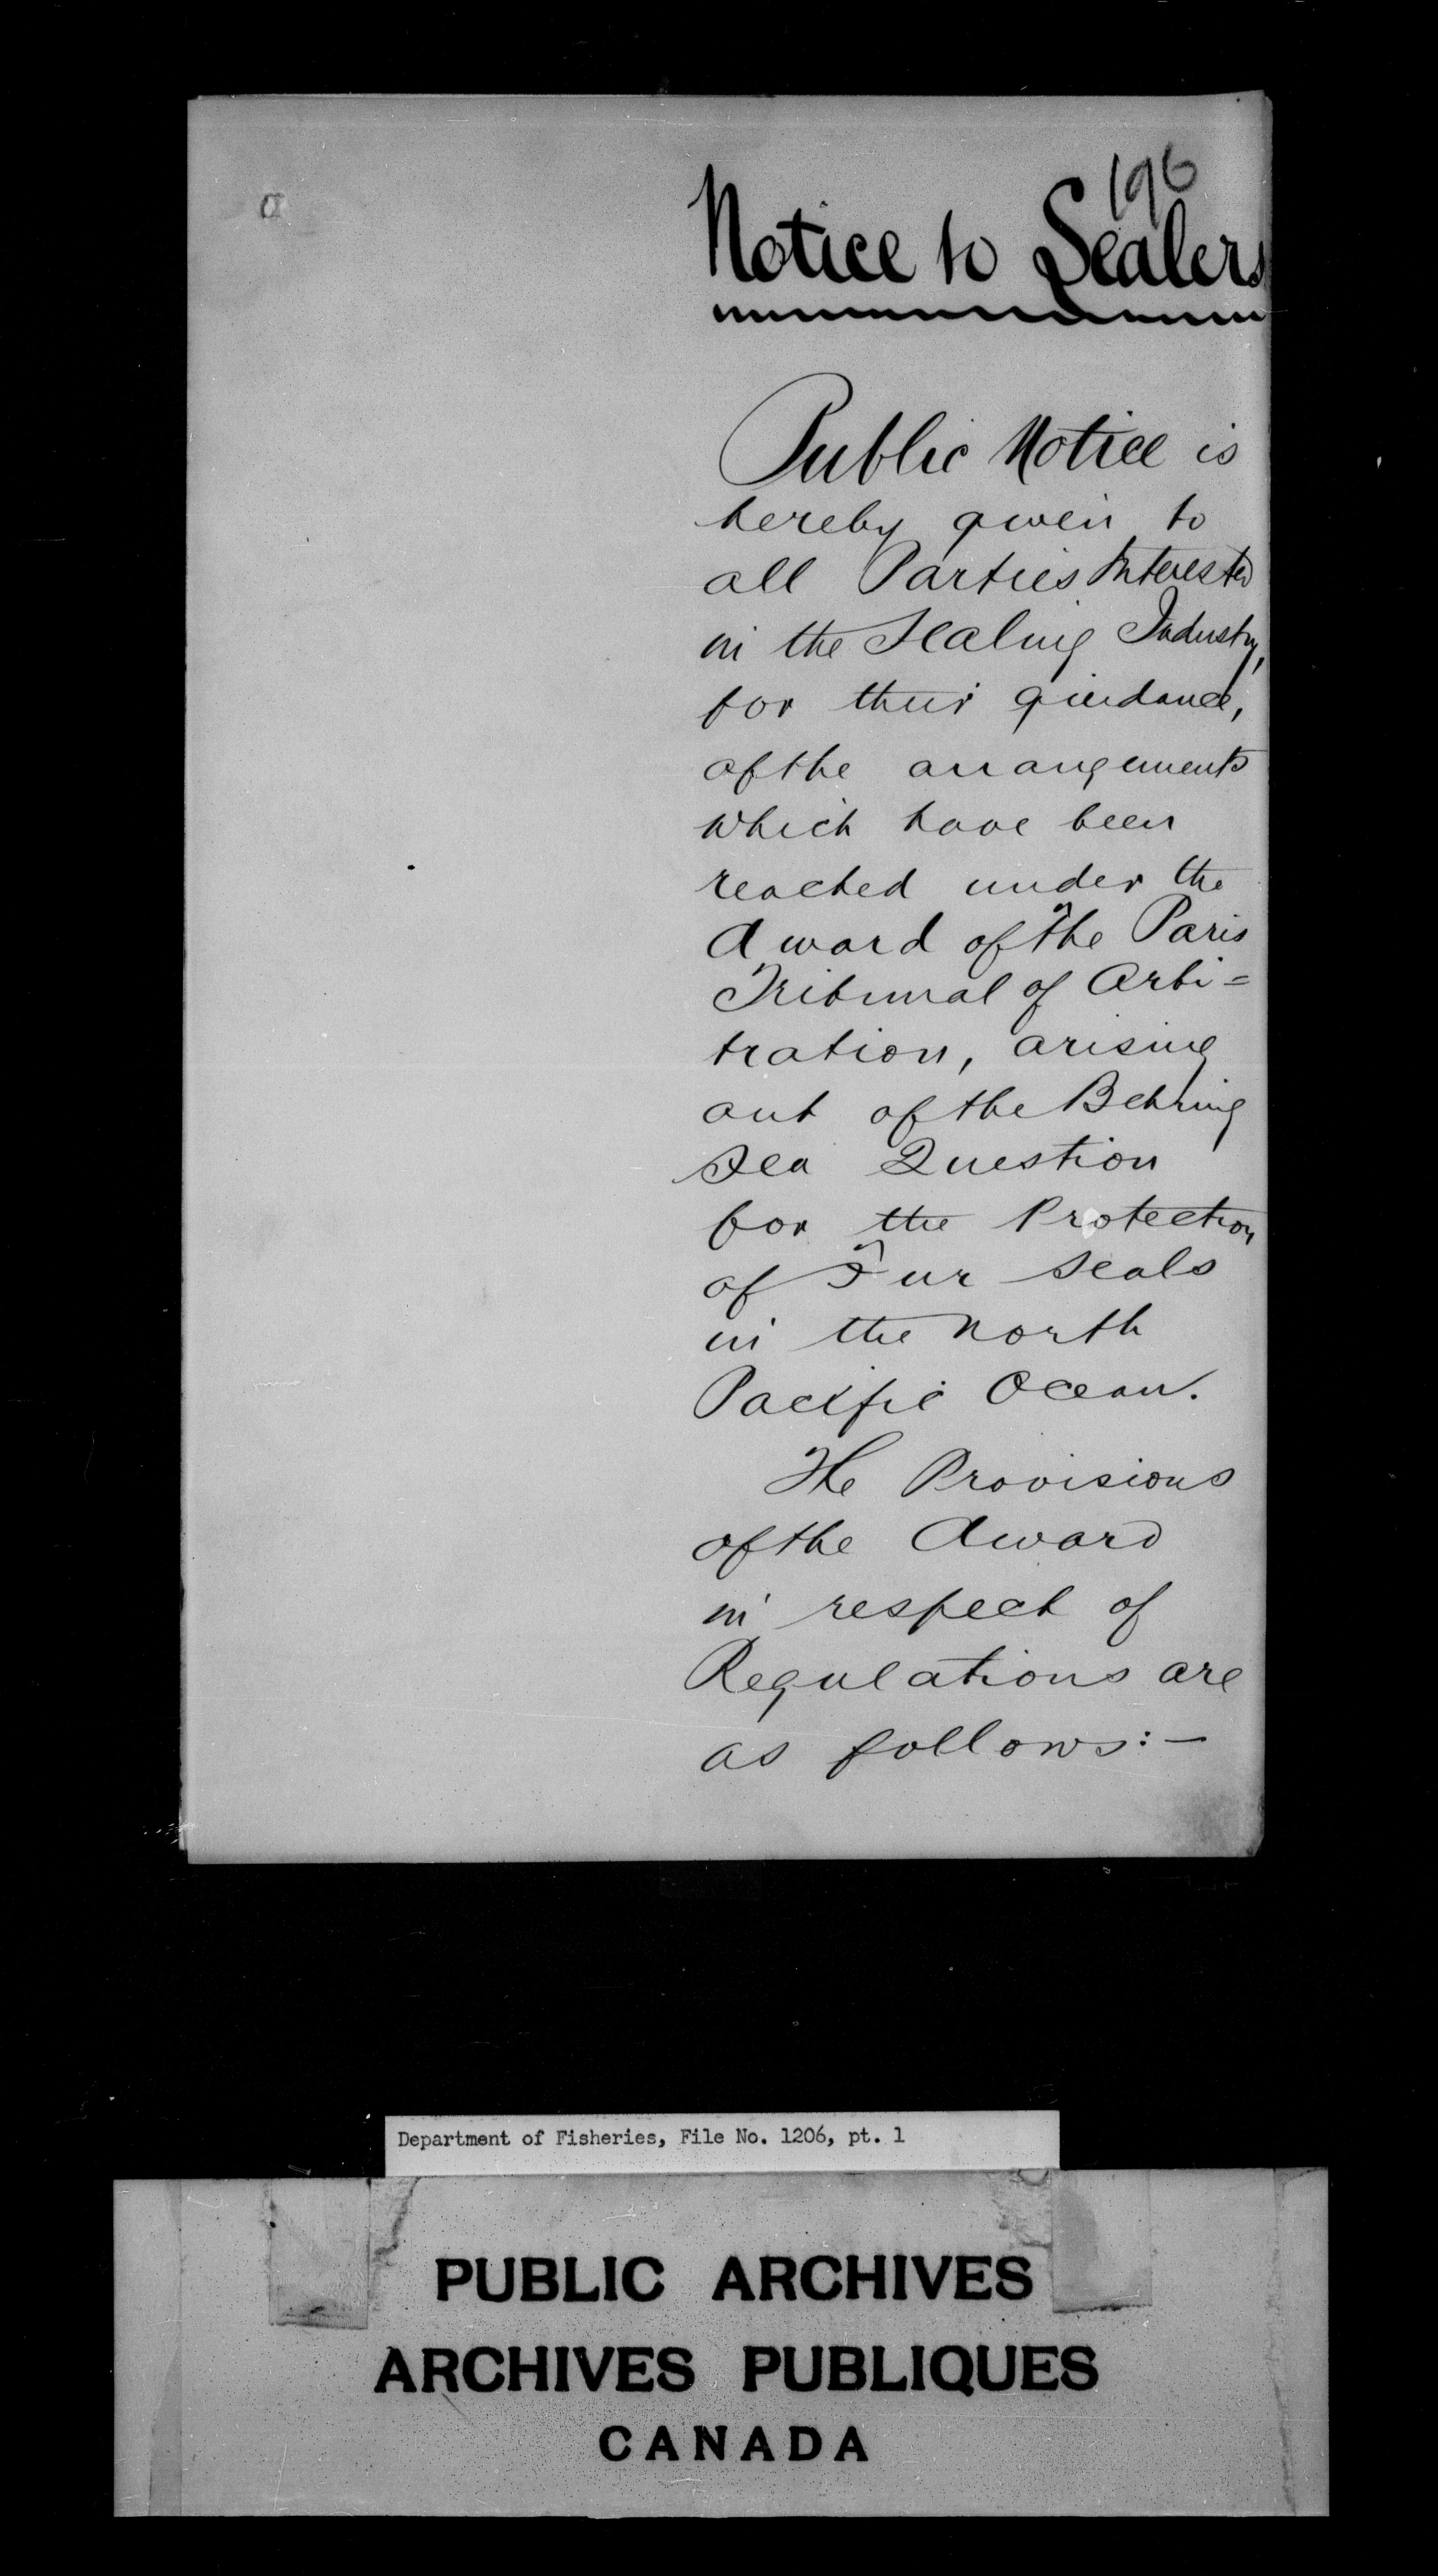 a
196
Notice to Sealers
Public Notice is
hereby given to
all Parties Interested
in the Sealing Industry,
for their guidance,
of the arrangements
which have been
reached under the
Award of the Paris
Tribunal of Arbi=
tration, arising
out of the Behring
Sea Question
for the Protection
of Fur Seals
in the North
Pacific Ocean.
The Provisions
of the Award
in respect of
Regulations are
as follows:—
Department of Fisheries, File No. 1206, pt. 1
PUBLIC ARCHIVES
ARCHIVES PUBLIQUES
CANADA